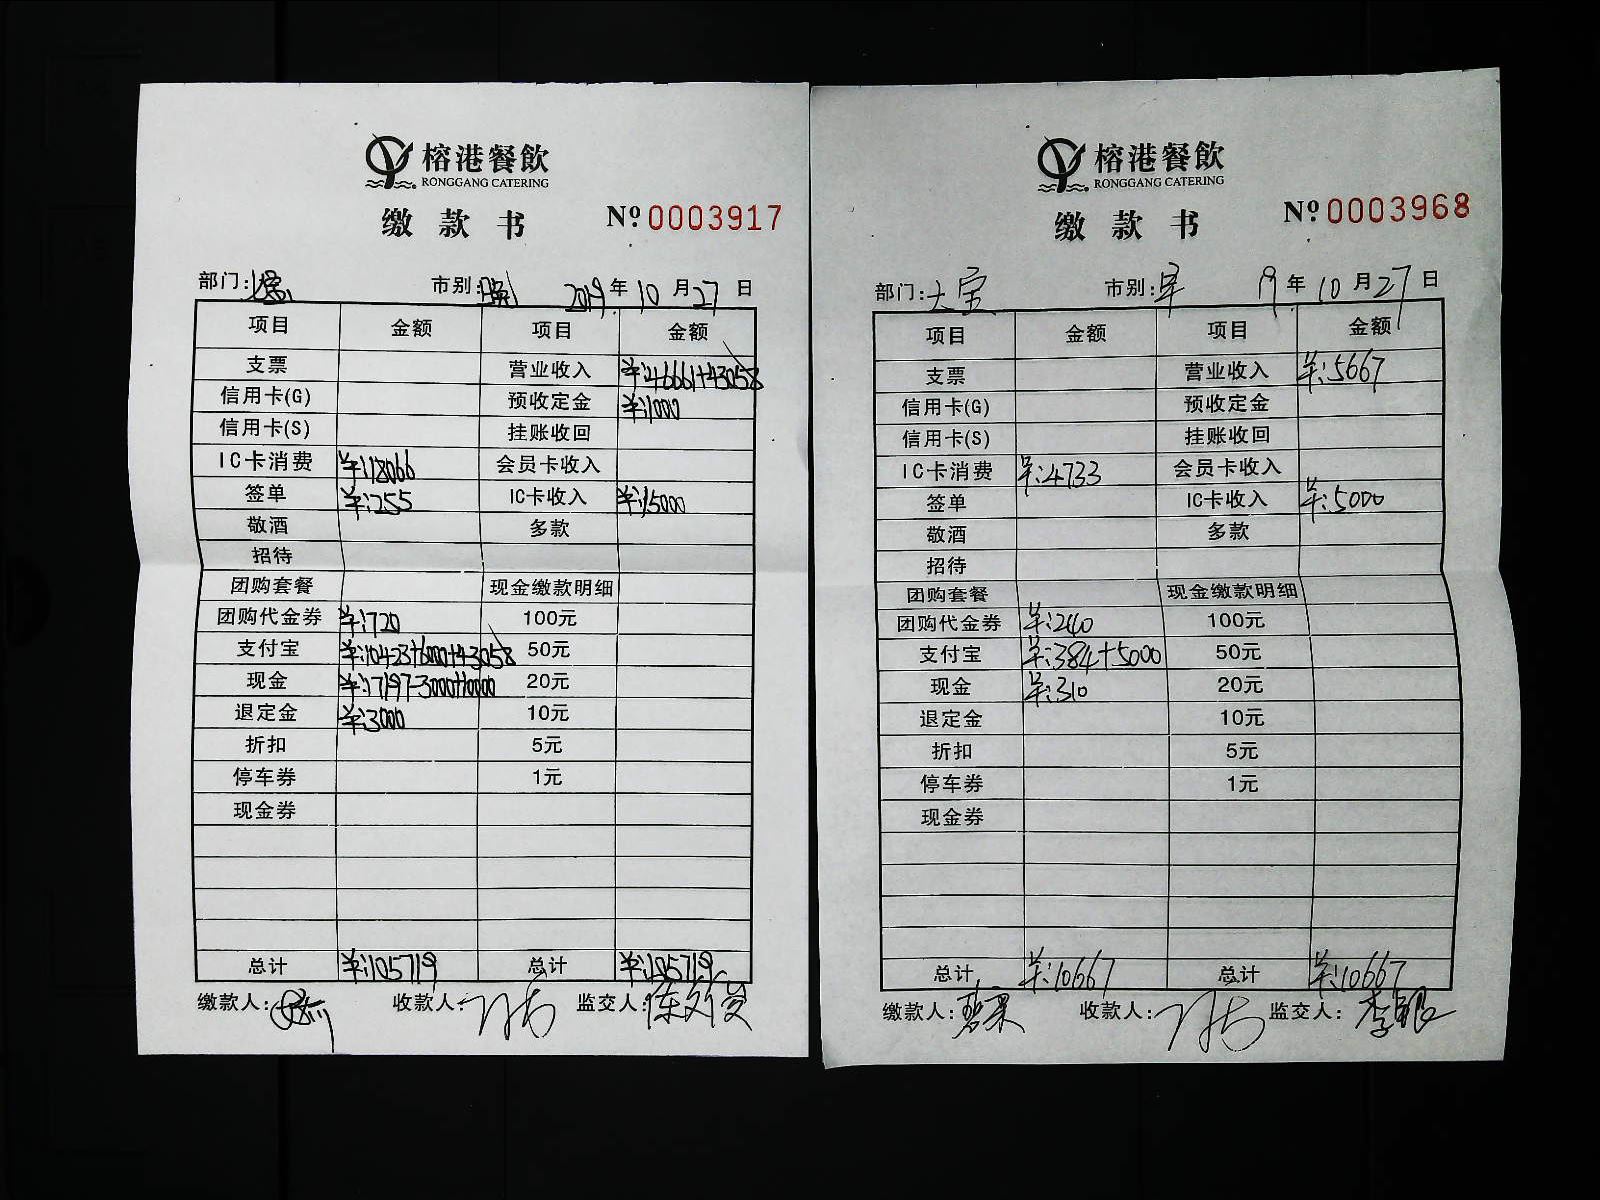 榕港餐飲
RONGGANG CATERING
缴款书
№ 0003917
部门: 市别: 2019年10月27日
项目 金额 项目 金额
支票 营业收入 ¥:46661+43058
信用卡(G) 预收定金 ¥:1000
信用卡(S) 挂账收回
IC卡消费 ¥:18066 会员卡收入
签单 ¥:255 IC卡收入 ¥:15000
敬酒 多款
招待
团购套餐 现金缴款明细
团购代金券 ¥:720 100元
支付宝 ¥:10423+6000+43058 50元
现金 ¥:17197-3000+10000 20元
退定金 ¥:3000 10元
折扣 5元
停车券 1元
现金券
总计 ¥:105719 总计 ¥:105719
缴款人: 收款人: 监交人:
榕港餐飲
RONGGANG CATERING
缴款书
№ 0003968
部门:大宝 市别:早 19年10月27日
项目 金额 项目 金额
支票 营业收入 ¥:5667
信用卡(G) 预收定金
信用卡(S) 挂账收回
IC卡消费 ¥:4733 会员卡收入
签单 IC卡收入 ¥:5000
敬酒 多款
招待
团购套餐 现金缴款明细
团购代金券 ¥:240 100元
支付宝 ¥:384+5000 50元
现金 ¥:310 20元
退定金 10元
折扣 5元
停车券 1元
现金券
总计 ¥:10667 总计 ¥:10667
缴款人: 收款人: 监交人: